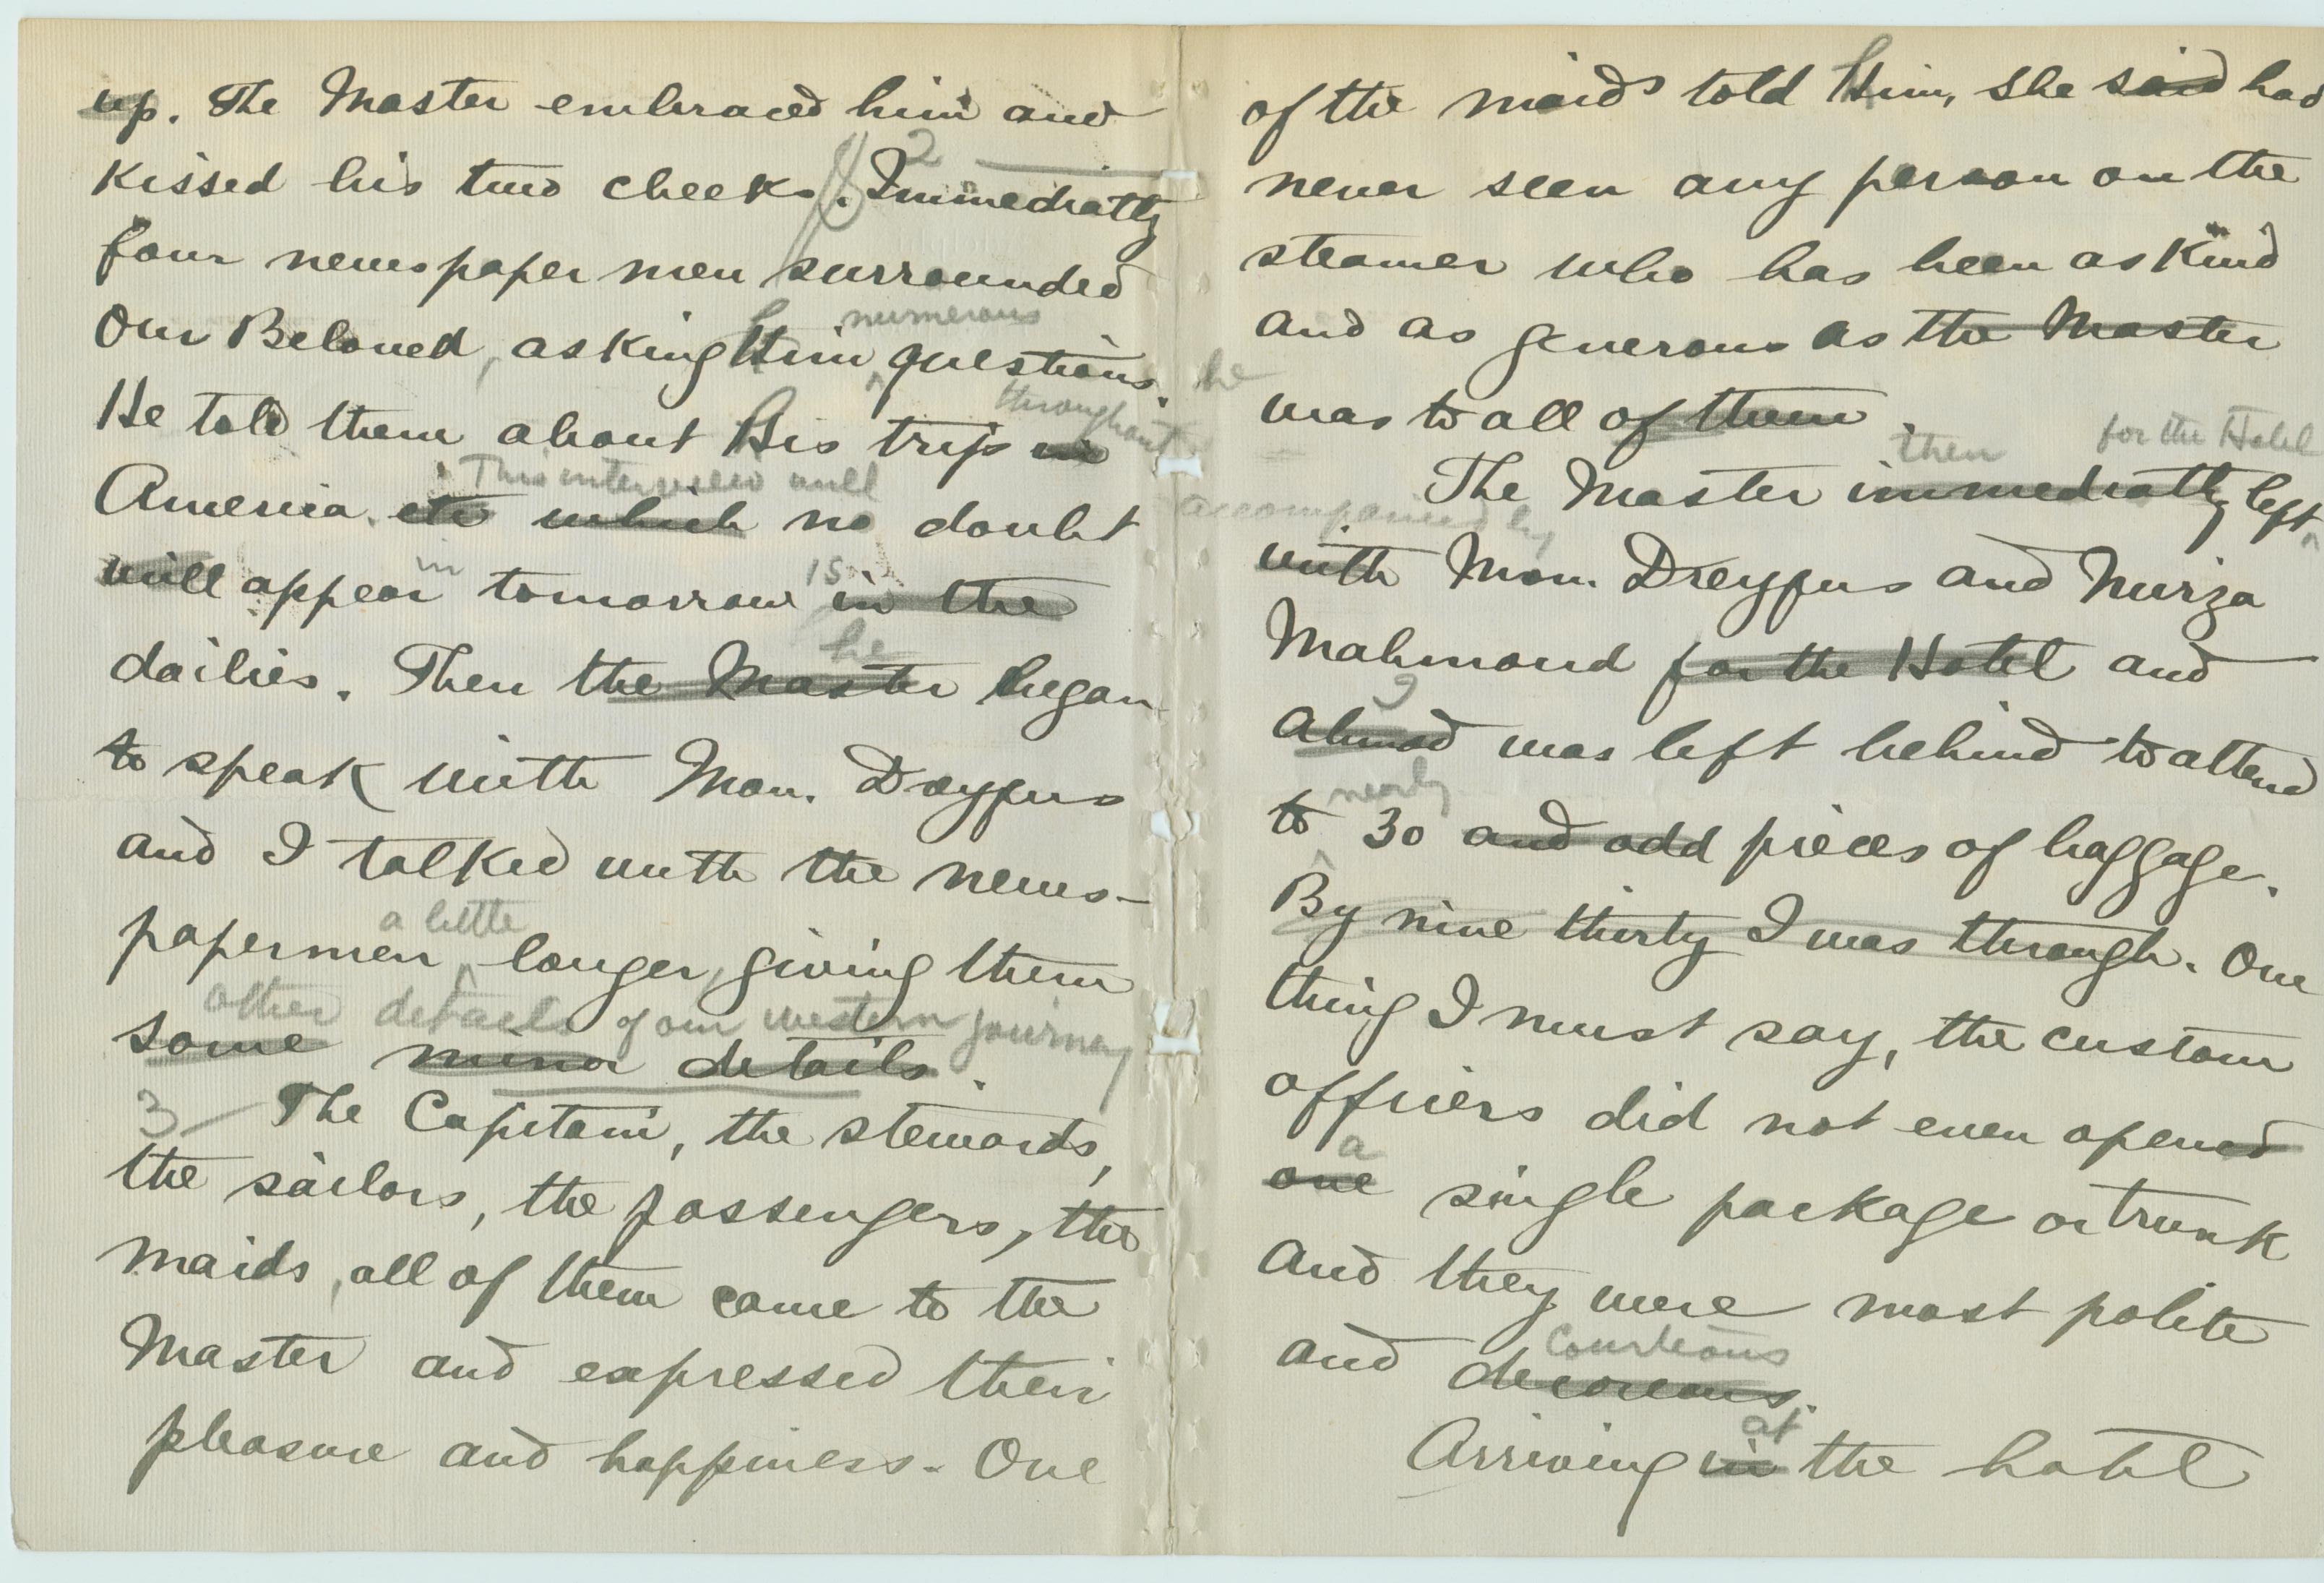 up. The Master embraced him and
kissed his two cheeks. 2 Immediatly
four newspaper men surrounded
numerous
Our Beloved, asking Him questions.
throughout
He told them about His trip in
This interview will
America. etc which no doubt
in is
will appear tomorrow in the
he
dailies. Then the Master began
to speak with Mon. Dreyfus
and I talked with the news-
a little
papermen longer, giving them
other details of our western journey
some minor details.
3 — The Capitain, the stewards,
the sailors, the passengers, the
maids, all of them came to the
Master and expressed their
pleasure and happiness. One
of the maids told Him, she said had
never seen any person on the
steamer who has been as kind
and as generous as the Master
he
was to all of them.
then for the Hotel
The Master immediatly left
accompanied by
with Mon. Dreyfus and Mirza
Mahmoud for the Hotel and
I
Ahmad was left behind to attend
nearly
to 30 and odd pieces of baggage.
By nine thirty I was through. One
thing I must say, the custom
officers did not even opened
a
one single package or trunk
and they were most polite
courteous
and decorous.
at
Arriving in the hotel